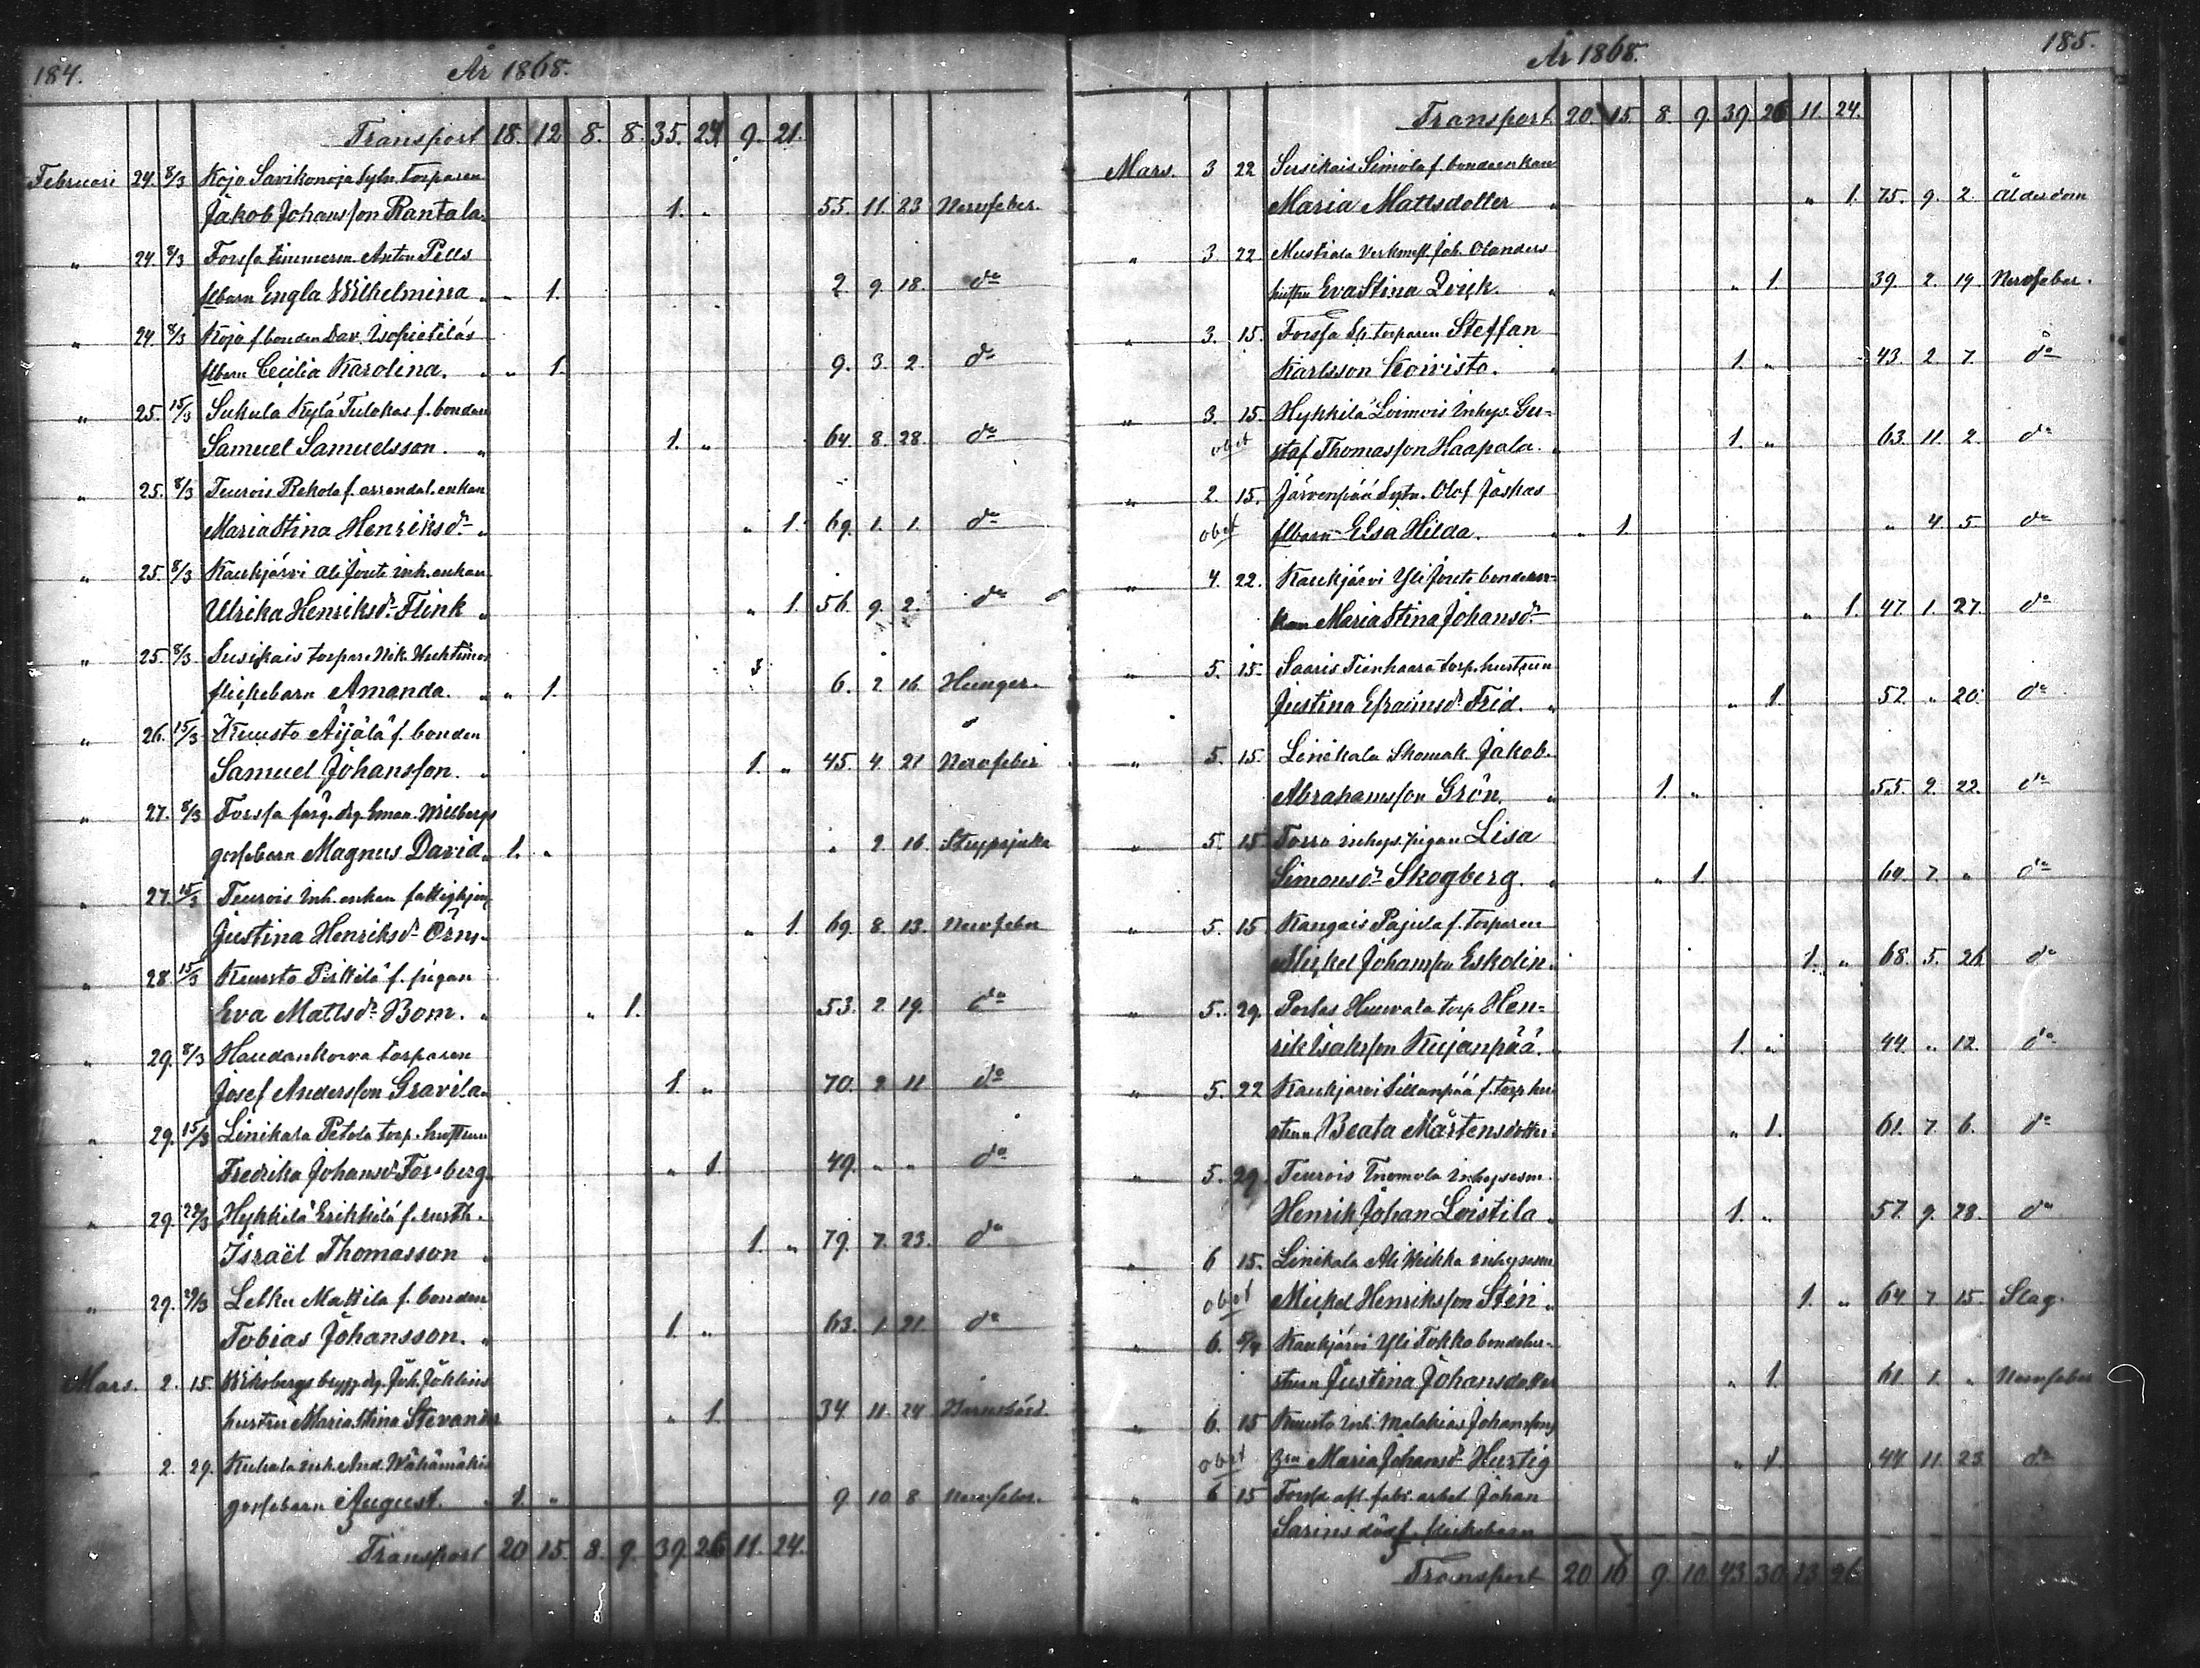 184.
År 1868.
Transport 18. 12 8. 8. 35. 24 9. 21.
Februari 24. 8/3 Kojo Savikonoja torparen
Jakob Johansson Rantala. 1. " 55. 11. 23 Nervfeber.
" 24 8/3 Forssa timmerm. Anton Pells
flbarn Engla Wilhelmina " " 1. 2. 9. 18. do
" 24 8/3 Kojo f bonden Dav.
flbarn Cecilia Karolina. " " 1. 9. 3. 2. do
" 25. 15/3 Sukula Kylä Tulokas f. bonden
Samuel Samuelsson. " 1. " 64. 8. 28. do
" 25. 8/3 Teurois Rekola f. arrendat. enkan
Maria Stina Henriksdr " " 1. 69. 1. 1. do
" 25. 8/3 Kaukjärvi Ali Jouti inh. enkan
Ulrika Henriksdr Flink " " 1. 56. 9. 2. do
" 25. 8/3 Susikais torpare Nik.
flickebarn Amanda. " " 1. 6. 2 16. Hunger.
" 26. 15/3 Kuusto Äijälä f. bonden
Samuel Johansson. " 1. " 45. 4. 21 Nervfeber
" 27. 8/3 Forssa färg. drg. Eman. Willbergs
gossebarn Magnus David " 1. " " 2 16. Stuppsjuka
" 27. 15/3 Teurois inh. enkan fattighjon
Justina Henriksdr Örn. " 1. 69. 8. 13. Nervfeber
" 28 15/3 Kuusto Pirkilä f. pigan
Eva Mattsdr Bom. " " 1. 53. 2 19. do
" 29. 8/3 Haudankorva torparen
Josef Andersson Gravila " 1. " 70. 2 11 do
" 29. 15/3 Linikala Petola torp. hustrun
Fredrika Johansdr Forsberg. " 1. 49. " " do
" 29. 22/3 Hykkilä Erikkilä f. rusth.
Israël Thomasson " 1. " 79. 7. 23. do
" 29. 29/3 Letku Mattila f. bonden
Tobias Johansson. " 1. " 63. 1. 21. do
Mars. 2. 15. Wiksbergs brygg. drg. Joh.
hustru Maria Stina Stevander " 1. 34 11. 24 Barnsbörd.
2. 29. inh. And. Wähämäkis
gossebarn August. " 1. " 9. 10. 8 Nervfeber.
Transport 20 15. 8. 9. 39. 26 11. 24.
185.
År 1868.
Transport 20. 15. 8. 9. 39 26 11. 24.
Mars. 3 22 Susikais Simola f. bondeenkan
Maria Mattsdotter " " 1. 75. 9. 2. Ålderdom
" 3 22 Mustiala Verkmest. Joh. Olanders
hustru Eva Stina Qvick. " " 1. 39. 2. 19. Nervfeber.
" 3. 15. Forssa torparen Steffan
Karlsson Koivisto. " 1. " 43. 2 7. do
" 3. 15. Hykkilä Loimois Inhys. Gu=
obet staf Thomasson Haapala. " 1. " 63. 11. 2. do
" 2. 15. Järvenpää Sytn. Olof Jäskas
obet flbarn Elsa Hilda. " " 1. " 4. 5. do
" 4. 22. Kaukjärvi Yli Jouti bondeen-
kan Maria Stina Johansdr " 1. 47. 1. 27. do
" 5. 15. Saaris Teinhaara torp. hustrun
Justina Efraimsdr Frid. " " 1. 52. " 20. do
" 5. 15. Linikala Skomak. Jakob.
Abrahamsson Grön. " 1. " 55. 2. 22. do
" 5. 15 Torro inhys. pigan Lisa
Simonsdr Skogberg. " " 1. 64. 7. " do
" 5. 15 Kangais Pajula f. torparen
Mickel Johansson Eskolin. 1. " 68. 5. 26. do
" 5. 29. Portas Huuvala torp Hen=
rik Isaksson Kujanpää. 1. " 44. " 12. do
" 5. 22 Kaukjärvi Sillanpää f. torp hu
strun Beata Mårtensdotter " 1. 61. 7. 6. do
" 5. 29. Teurois Tuomola inhysesm.
Henrik Johan Loistila " 1. " 57. 9. 28. do
" 6 15. Linikala Ali Wikka inhysesm
obet Mickel Henriksson Stén " 1. " 64 7 15. Slag.
" 6. 5/4 Kaukjärvi Yli Tokko bondehu-
strun Justina Johansdotter " 1. 61. 1. " Nervfeber
" 6. 15 Kuusto inh. Malakias Johanssons
obet Maria Johansdr Hurtig " 1. 44 11. 23. do
" 6 15 Forssa afl. fabr. arbet. Johan
Sarins dödf. flickebarn
Transport 20 16 9. 10. 43 30 13 26